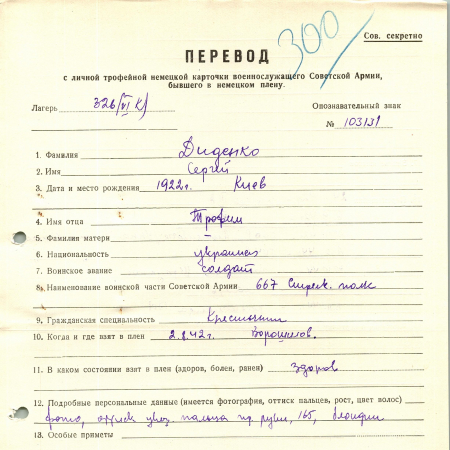 300
Сов. секретно
ПЕРЕВОД
с личной трофейной немецкой карточки военнослужащего Советской Армии,
бывшего в немецком плену.
Лагерь 326 (VI K)
Опознавательный знак
№ 103131
1. Фамилия Диденко
2. Имя Сергей
3. Дата и место рождения 1922 г. Киев
4. Имя отца Трофим
5. Фамилия матери –
6. Национальность украинец
7. Воинское звание солдат
8. Наименование воинской части Советской Армии 667 Стрел. полк
9. Гражданская специальность Крестьянин
10. Когда и где взят в плен 2.8.42 г. Ворошилов.
11. В каком состоянии взят в плен (здоров, болен, ранен) Здоров
12. Подробные персональные данные (имеется фотография, оттиск пальцев, рост, цвет волос)
фото, оттиск указ. пальца пр. руки, 165, блондин
13. Особые приметы